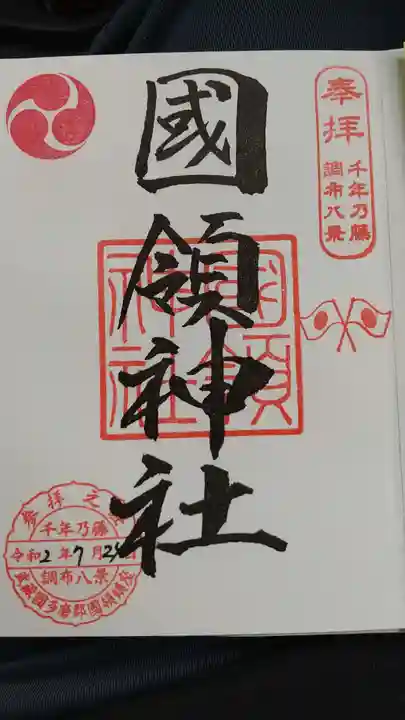 奉拝
千年乃藤
調布八景
國領神社
國領
神社
參拝之
千年乃藤
令和2年7月2
調布八景
武蔵國多磨郡國領鎮座